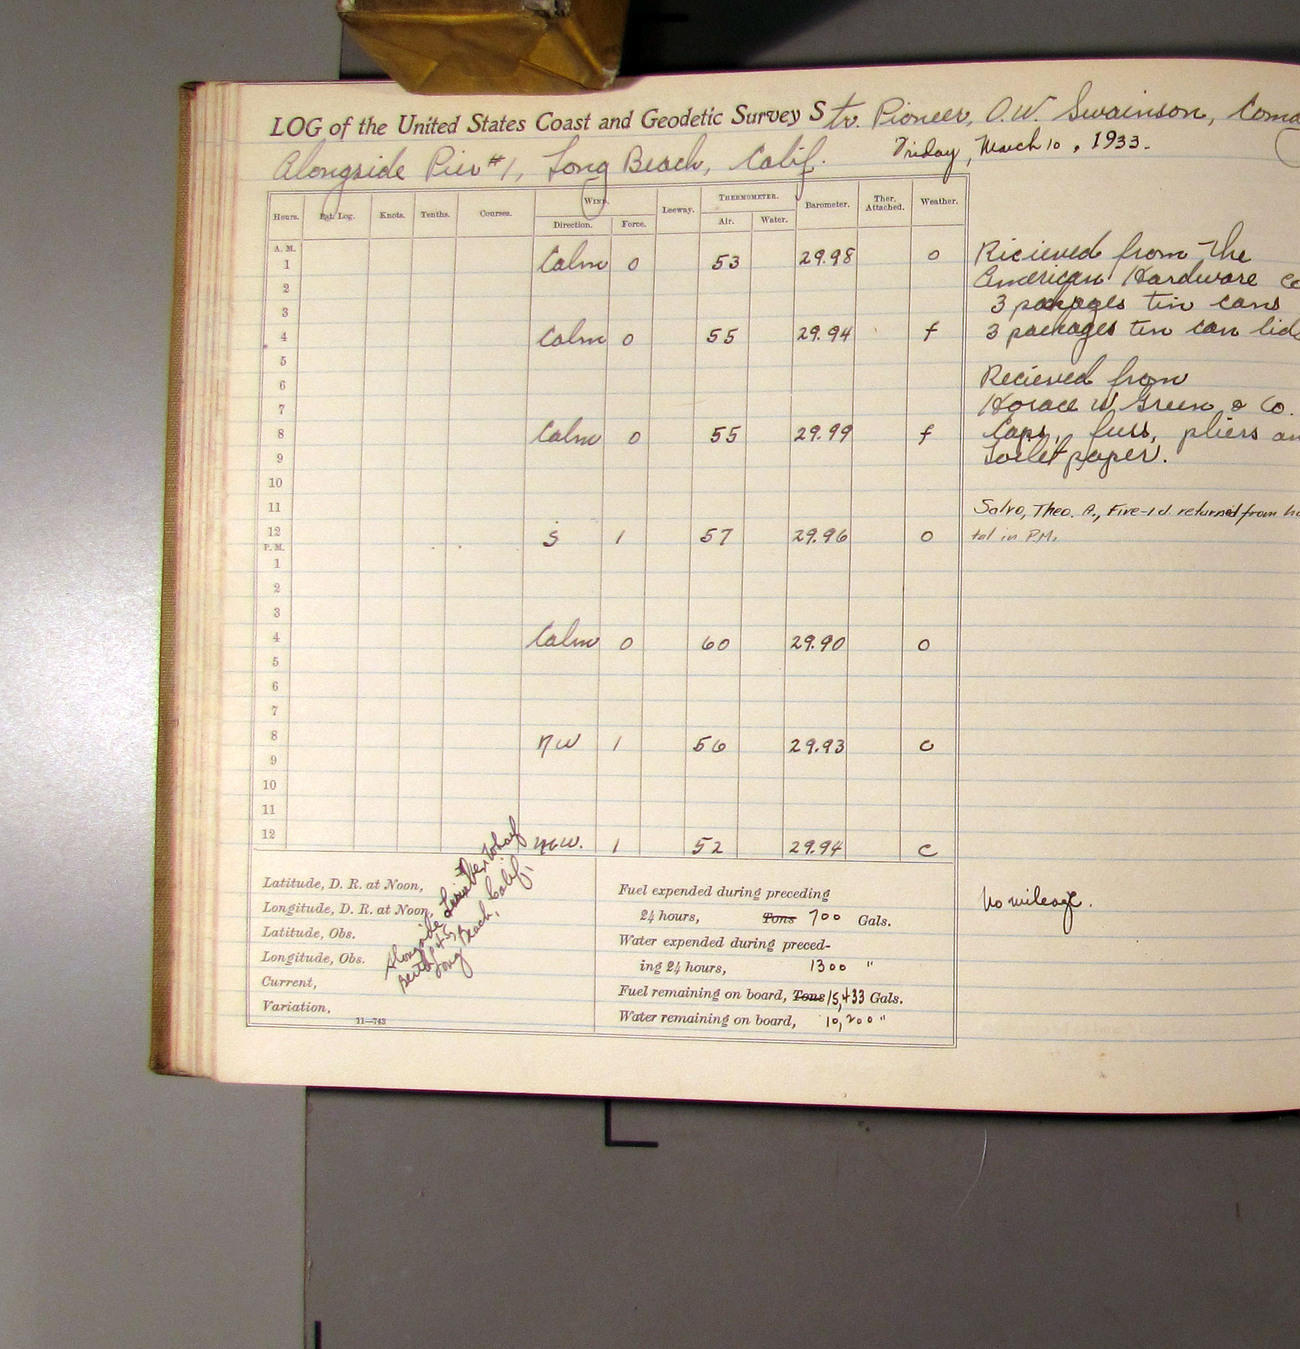 LOG of the United States Coast and Geodetic Survey Str. Pioneer, O.W. Swainson, Coma
Alongside Pier #1, Long Beach, Calif. Friday, March 10, 1933.
Hours. Pat. Log. Knots. Tenths. Courses. WIND. Leeway. THERMOMETER. Barometer. Ther. Attached. Weather.
Direction. Force. Air. Water.
A. M.
1 Calm 0 53 29.98 o Recieved from The
2 American Hardware Co
3 3 packages tin cans
4 Calm 0 55 29.94 f 3 packages tin can lids
5
6 Recieved from
7 Horace W Green & Co.
8 Calm 0 55 29.99 f Caps, fuse, pliers an
9 Toilet paper.
10
11 Salvo, Theo. A., Fire-1d. returned from ho
12 S 1 57 29.96 o tal in P.M.
P. M.
1
2
3
4 Calm 0 60 29.90 o
5
6
7
8 NW 1 56 29.93 c
9
10
11
12 NW. 1 52 29.94 c
Latitude, D. R. at Noon,
Longitude, D. R. at Noon,
Latitude, Obs.
Longitude, Obs.
Current,
Variation,
11—743
Alongside Pier Wharf
Berth
Long Beach, Calif.
Fuel expended during preceding
24 hours, Tons 700 Gals.
Water expended during preced-
ing 24 hours, 1300 "
Fuel remaining on board, Tons 15,433 Gals.
Water remaining on board, 10,200 "
No mileage.